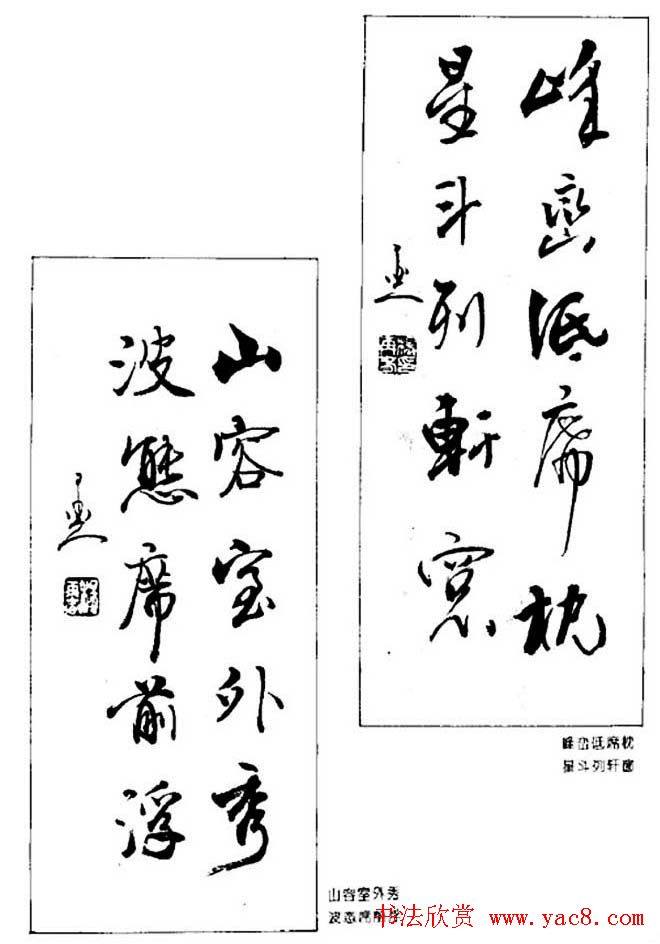 峰巒低席枕
星斗列軒窗
峰峦低席枕
星斗列轩窗
山容室外秀
波態席前浮
山容室外秀
波态席前浮
书法欣赏 www.yac8.com